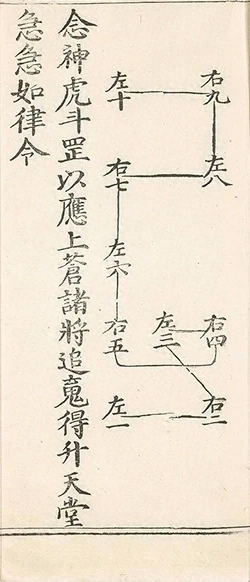 右九
左十
左八
右七
左六
右四
左三
右五
右二
左一
念神虎斗罡以應上蒼諸將追䰟得升天堂
急急如律令